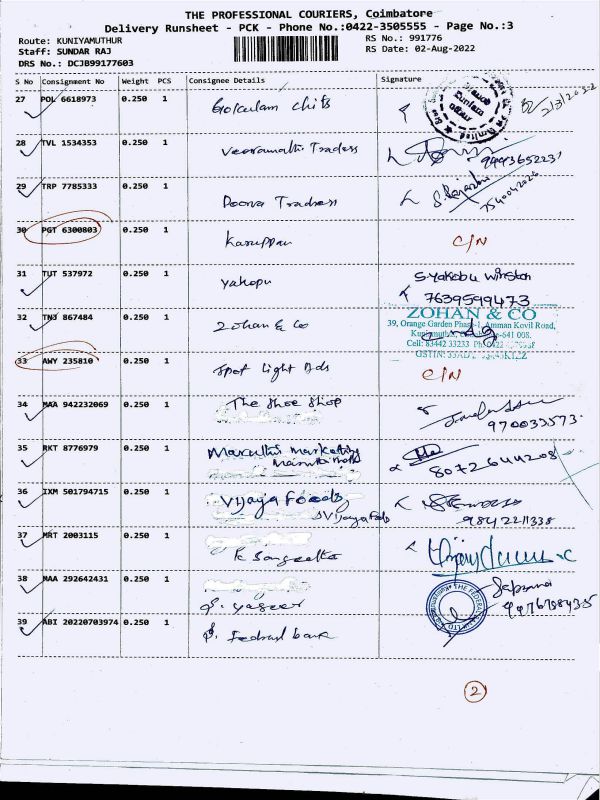 THE PROFESSIONAL COURIERS, Coimbatore
Delivery Runsheet - PCK - Phone No.:0422-3505555 - Page No.:3
Route: KUNIYAMUTHUR RS No.: 991776
Staff: SUNDAR RAJ RS Date: 02-Aug-2022
DRS No.: DCJB99177603
S No Consignment No Weight PCS Consignee Details Signature
27 POL 6618973 0.250 1 Gokulam chits
28 TVL 1534353 0.250 1 Veeramathi Traders
29 TRP 7785333 0.250 1 Poorva Traders 7540042026
30 PGT 6300803 0.250 1 Karuppan C/N
31 TUT 537972 0.250 1 yakopu S.Yakobu Winston
7639599473
32 TNJ 867484 0.250 1 Zohan & Co
ZOHAN & CO
39, Orange Garden Phase-1, Amman Kovil Road,
641 008.
Cell: 83442 33233
33 AWY 235810 0.250 1 Spot Light Ads C/N
34 MAA 942232069 0.250 1 The Shoe Shop
970033573
35 RKT 8776979 0.250 1 Maruthi Marketing
8072644208
36 IXM 501794715 0.250 1 Vijaya Foods
Vijaya Foods 9842211338
37 MRT 2003115 0.250 1
K Sangeetha
38 MAA 292642431 0.250 1
S. Yaseer
39 ABI 20220703974 0.250 1 Federal bank
THE FEDERAL
2